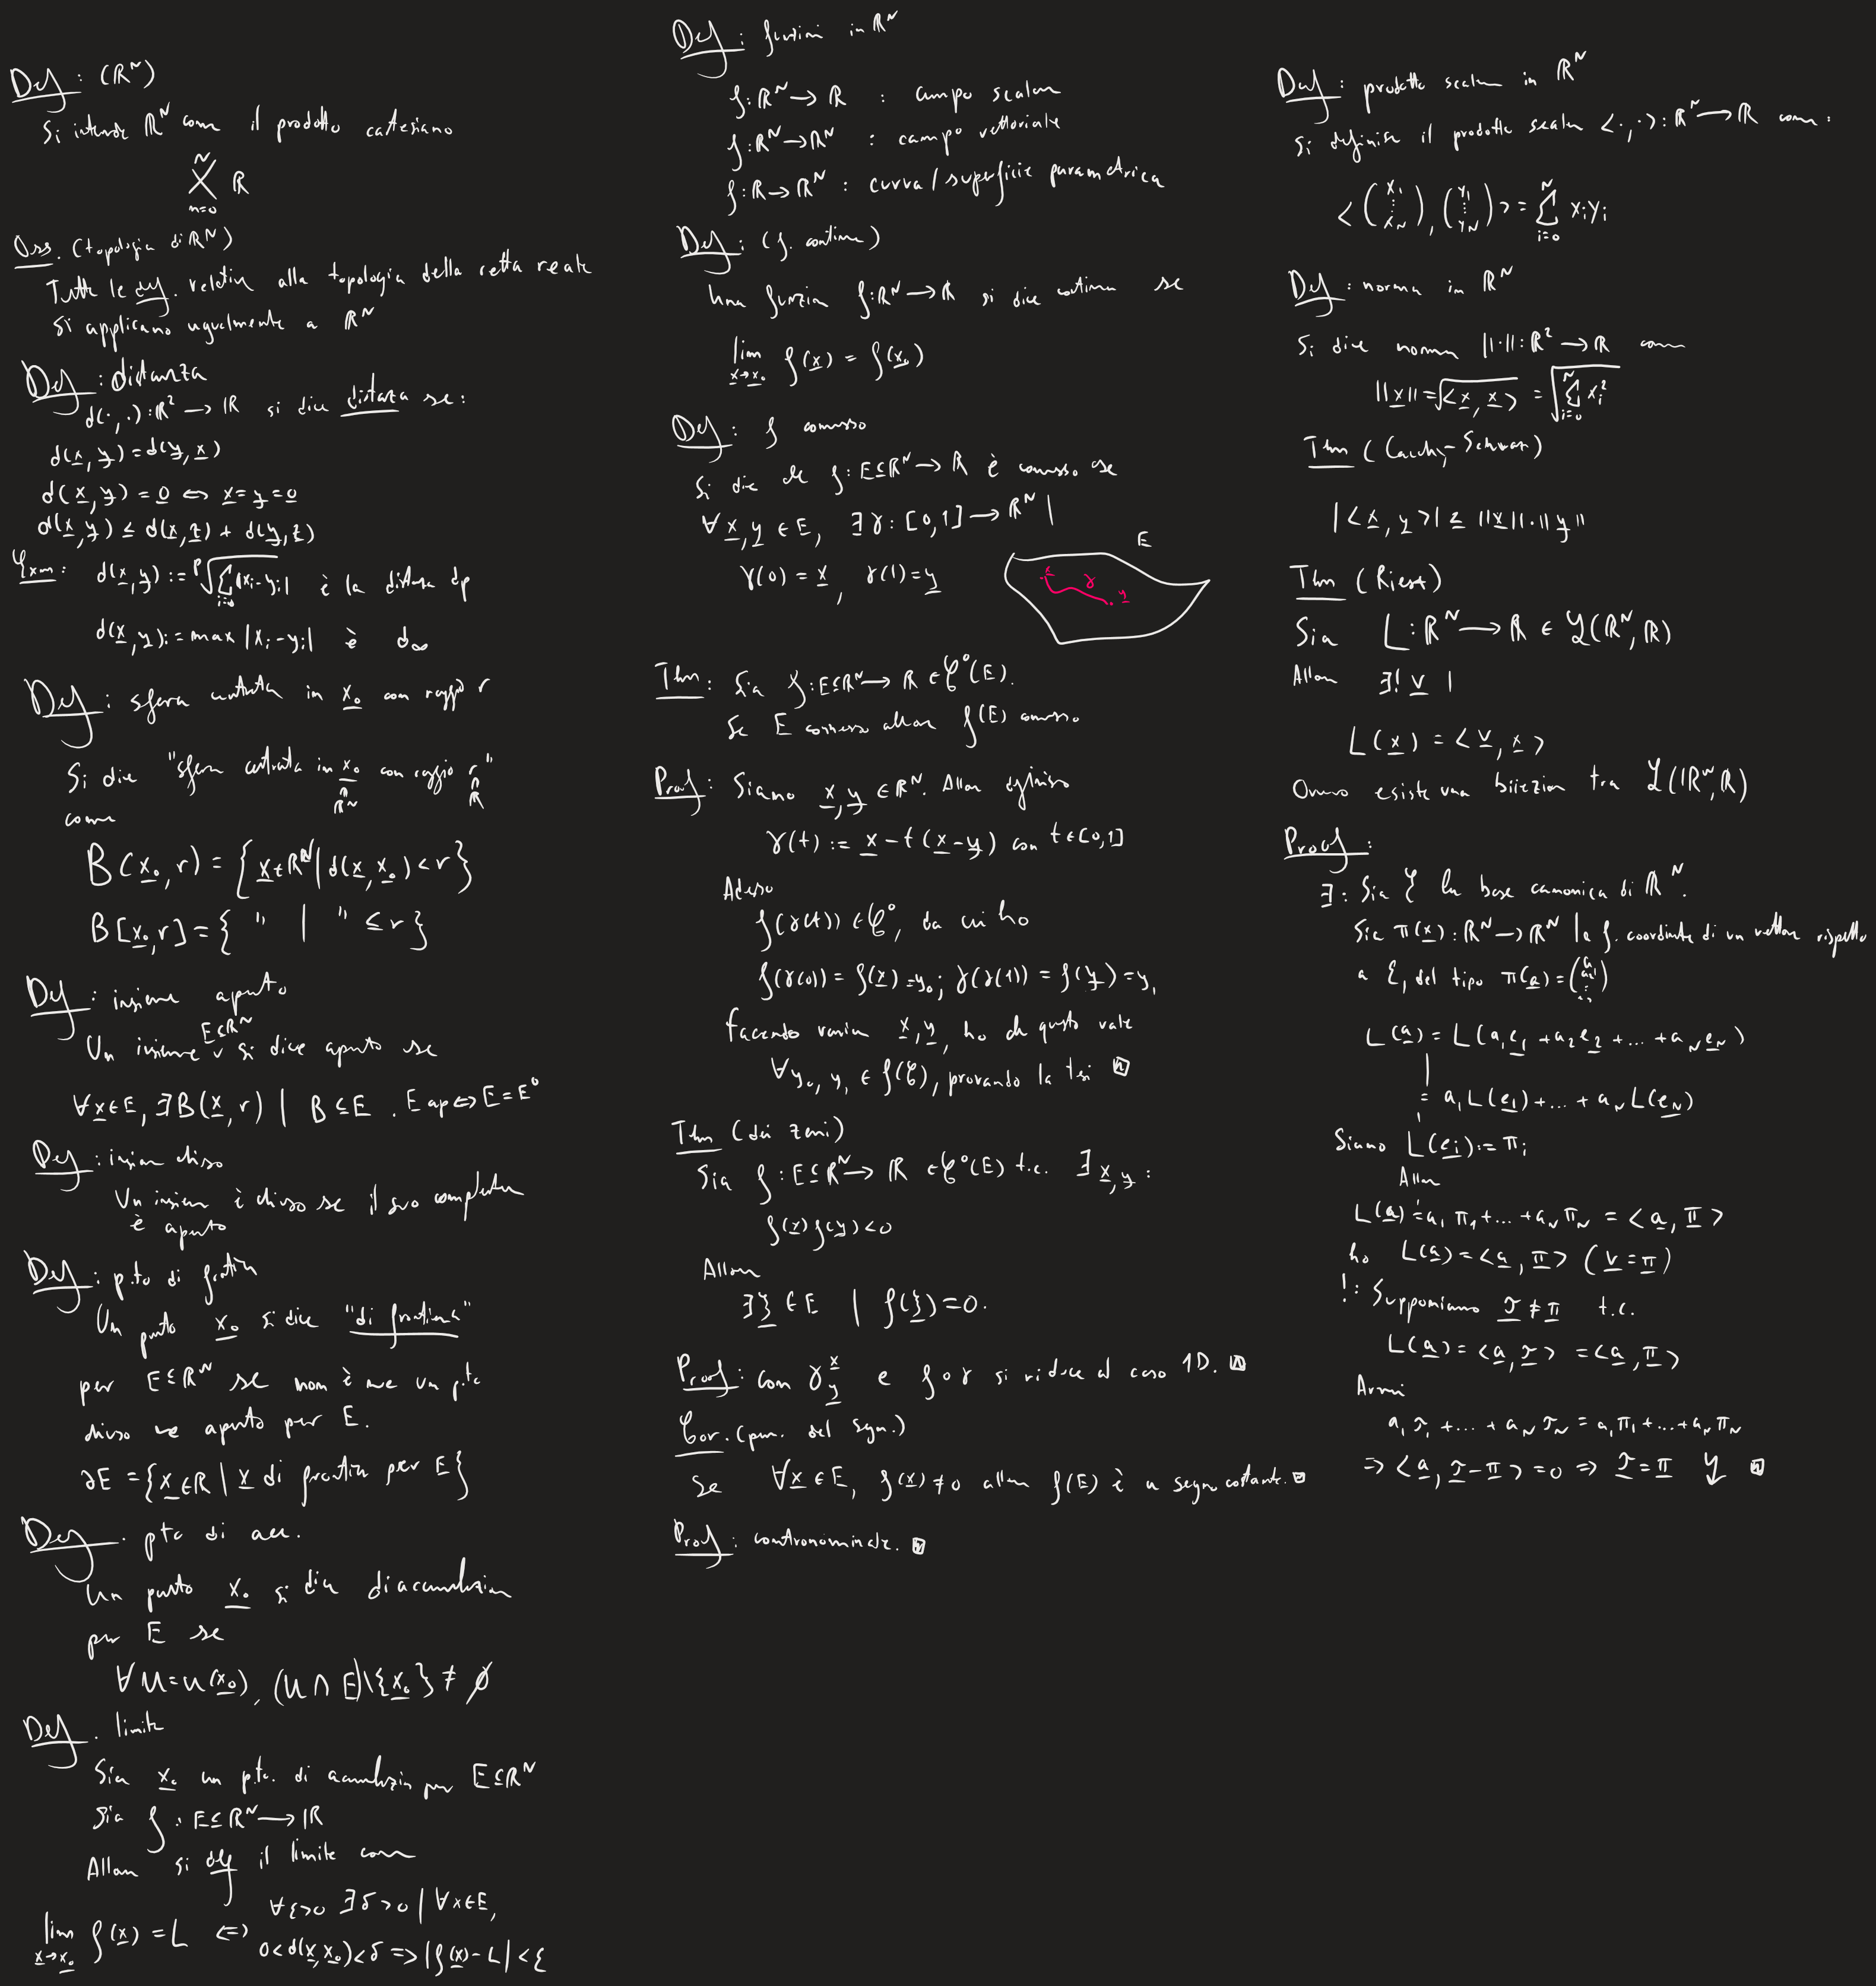 Def: (ℝᴺ)
Si intende ℝᴺ come il prodotto cartesiano
N
X ℝ
n=0
Oss. (topologia di ℝᴺ)
Tutte le def. relative alla topologia della retta reale
si applicano ugualmente a ℝᴺ
Def: distanza
d(·,·):ℝ² → ℝ si dice distanza se:
d(x, y) = d(y, x)
d(x, y) = 0 ⇔ x = y = 0
d(x, y) ≤ d(x, z) + d(y, z)
Exm: d(x, y) := ᵖ√Σ_{i=0} |xᵢ-yᵢ| è la distanza dp
d(x, y) := max |xᵢ-yᵢ| è d∞
Def: sfera centrata in x₀ con raggio r
Si dice "sfera centrata in x₀ con raggio r"
ℝᴺ ℝ
come
B(x₀, r) = {x∈ℝᴺ | d(x, x₀) < r}
B[x₀, r] = { " | " ≤ r }
Def: insieme aperto
E⊆ℝᴺ
Un insieme v si dice aperto se
∀x∈E, ∃B(x, r) | B ⊆ E. E ap ⇔ E = E⁰
Def: insieme chiuso
Un insieme è chiuso se il suo complementare
è aperto
Def: p.to di frontiera
Un punto x₀ si dice "di frontiera"
per E⊆ℝᴺ se non è ne un p.to
chiuso ne aperto per E.
∂E = {x∈ℝ | x di frontiera per E}
Def. pto di acc.
Un punto x₀ si dice di accumulazione
per E se
∀U=U(x₀), (U ∩ E)\{x₀} ≠ ∅
Def. limite
Sia x₀ un p.to. di accumulazione per E⊆ℝᴺ
Sia f: E⊆ℝᴺ → ℝ
Allora si def il limite come
lim_{x→x₀} f(x) = L ⇔ ∀ε>0 ∃δ>0 | ∀x∈E,
0<d(x, x₀)<δ => |f(x) - L| < ε
Def: funzioni in ℝᴺ
f: ℝᴺ → ℝ : campo scalare
f: ℝᴺ → ℝᴺ : campo vettoriale
f: ℝ → ℝᴺ : curva / superficie parametrica
Def: (f. continua)
Una funzione f: ℝᴺ → ℝ si dice continua se
lim_{x→x₀} f(x) = f(x₀)
Def: f connesso
Si dice che f: E⊆ℝᴺ → ℝ è connesso se
∀x, y ∈ E, ∃γ: [0,1] → ℝᴺ |
γ(0) = x, γ(1) = y
E
x γ y
Thm: Sia f: E⊆ℝᴺ → ℝ ∈ 𝒞⁰(E).
Se E connesso allora f(E) connesso
Proof: Siano x, y ∈ ℝᴺ. Allora definisco
γ(t) := x - t(x-y) con t∈[0,1]
Adesso
f(γ(t)) ∈ 𝒞⁰, da cui ho
f(γ(0)) = f(x) = y₀; γ(γ(1)) = f(y) = y₁
Facendo variare x, y, ho che questo vale
∀y₀, y₁ ∈ f(𝒞), provando la tesi
Thm (dei zeri)
Sia f: E⊆ℝᴺ → ℝ ∈ 𝒞⁰(E) t.c. ∃x, y :
f(x)f(y) < 0
Allora
∃ξ ∈ E | f(ξ) = 0.
Proof: con γ_y^x e f∘γ si riduce al caso 1D.
Cor. (perm. del segn.)
Se ∀x ∈ E, f(x) ≠ 0 allora f(E) è a segno costante.
Proof: contronominale.
Def: prodotto scalare in ℝᴺ
Si definisce il prodotto scalare <·,·>: ℝᴺ → ℝ come:
<(x₁ ⋮ x_N), (y₁ ⋮ y_N)> = Σ_{i=0}^N xᵢyᵢ
Def: norma in ℝᴺ
Si dice norma ||·||: ℝ² → ℝ come
||x|| = √<x, x> = √Σ_{i=0}^N xᵢ²
Thm (Cauchy-Schwarz)
|<x, y>| ≤ ||x||·||y||
Thm (Riesz)
Sia L: ℝᴺ → ℝ ∈ ℒ(ℝᴺ, ℝ)
Allora ∃! v |
L(x) = <v, x>
Ovvero esiste una biiezione tra ℒ(ℝᴺ, ℝ)
Proof:
∃: Sia ℰ la base canonica di ℝᴺ.
Sia π(x): ℝᴺ → ℝᴺ la f. coordinate di un vettore rispetto
a ℰ, del tipo π(a) = (a₁ ⋮)
L(a) = L(a₁e₁ + a₂e₂ + ... + a_N e_N)
= a₁L(e₁) + ... + a_N L(e_N)
Siano L(eᵢ) := πᵢ
Allora
L(a) = a₁π₁ + ... + a_Nπ_N = <a, π>
ho L(a) = <a, π> (v = π)
!: Supponiamo τ ≠ π t.c.
L(a) = <a, τ> = <a, π>
Avrei
a₁τ₁ + ... + a_Nτ_N = a₁π₁ + ... + a_Nπ_N
=> <a, τ - π> = 0 => τ = π ↯